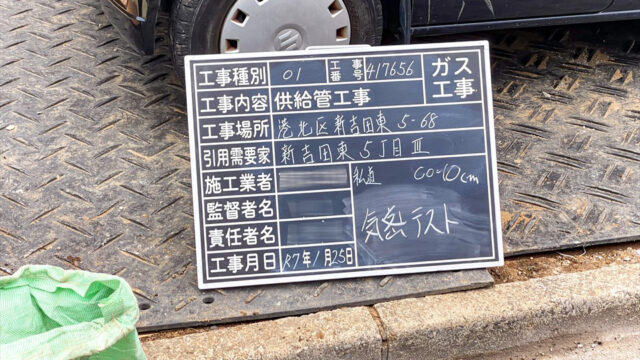 工事種別 01 工事番号 417656 ガス工事
工事内容 供給管工事
工事場所 港北区新吉田東5-68
引用需要家 新吉田東5丁目Ⅲ
施工業者 私道 CO=10cm
監督者名
気密テスト
責任者名
工事月日 R7年1月25日